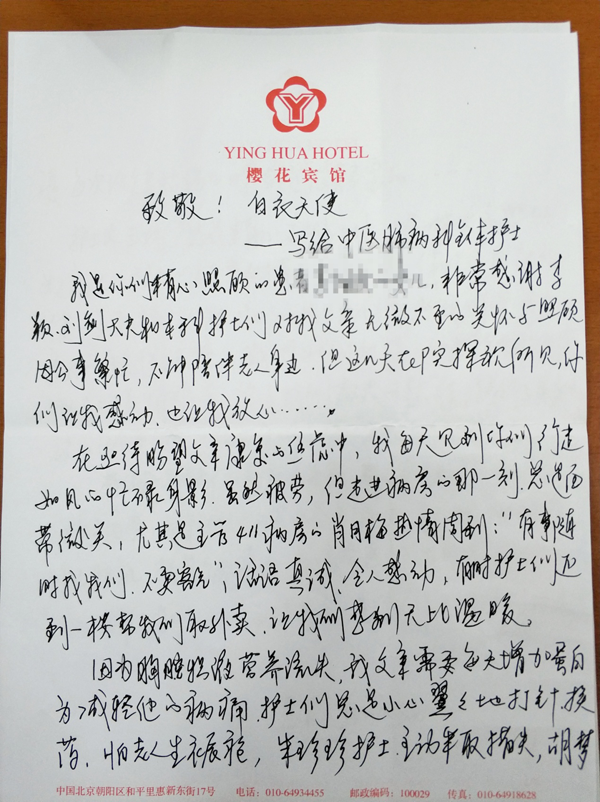 YING HUA HOTEL
樱花宾馆
致敬！白衣天使
——写给中医肺病科全体护士
我是你们精心照顾的患 儿，非常感谢李
颖、刘剑大夫和本科护士们对我父亲无微不至的关怀与照顾
因公事繁忙，不能陪伴老人身边，但这几天在医院探视所见，你
们让我感动，也让我放心……。
在期待盼望父亲康复的焦虑中，我每天见到你们行走
如风的忙碌身影，虽然疲劳，但走进病房的那一刻，总是面
带微笑，尤其是主管411病房的肖月梅热情周到："有事随
时找我们，不要客气"，话语真诚、令人感动，有时护士们还
到一楼帮我们取外卖，让我们感到无比温暖。
因为胸腔积液营养流失，我父亲需要每天增加蛋白
为减轻他的病痛，护士们总是小心翼々地打针换
药，怕老人生衣展疮，朱珍珍护士主动采取措失，胡梦
中国北京朝阳区和平里惠新东街17号 电话：010-64934455 邮政编码：100029 传真：010-64918628